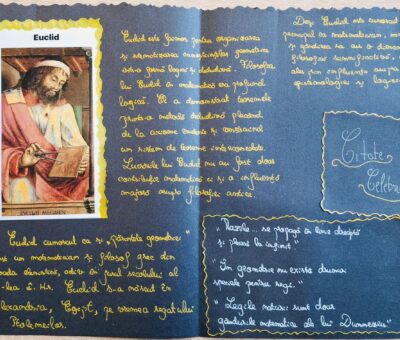 Euclid
Euclid este faimos pentru organizarea
și sistematizarea cunoștințelor geometrice
într-o formă logică și deductivă. Filosofia
lui Euclid în matematică era profund
logică. El a demonstrat teoremele
printr-o metodă deductivă plecând
de la axiome evidente și construind
un sistem de teoreme interconectate.
Lucrările lui Euclid nu au fost doar
contribuții matematice ci și a influențat
major asupra filosofiei antice.
Euclid cunoscut ca și „părintele geometriei”
un matematician și filosof grec din
elenistică, adică în jurul secolului al
î. Hr. Euclid s-a născut în
Alexandria, Egipt, pe vremea regatului
Ptolemeilor.
Deși Euclid este cunoscut
principal ca matematician,
și gândirea sa au o
filosofică
ales prin influența
epistemologiei și logicii
Citate
Celebre
" Razele... se propagă în linie dreaptă
și pleacă la infinit."
" În geometrie nu există drumuri
speciale pentru regi. "
" Legile naturii sunt doar
gândurile matematice ale lui Dumnezeu"